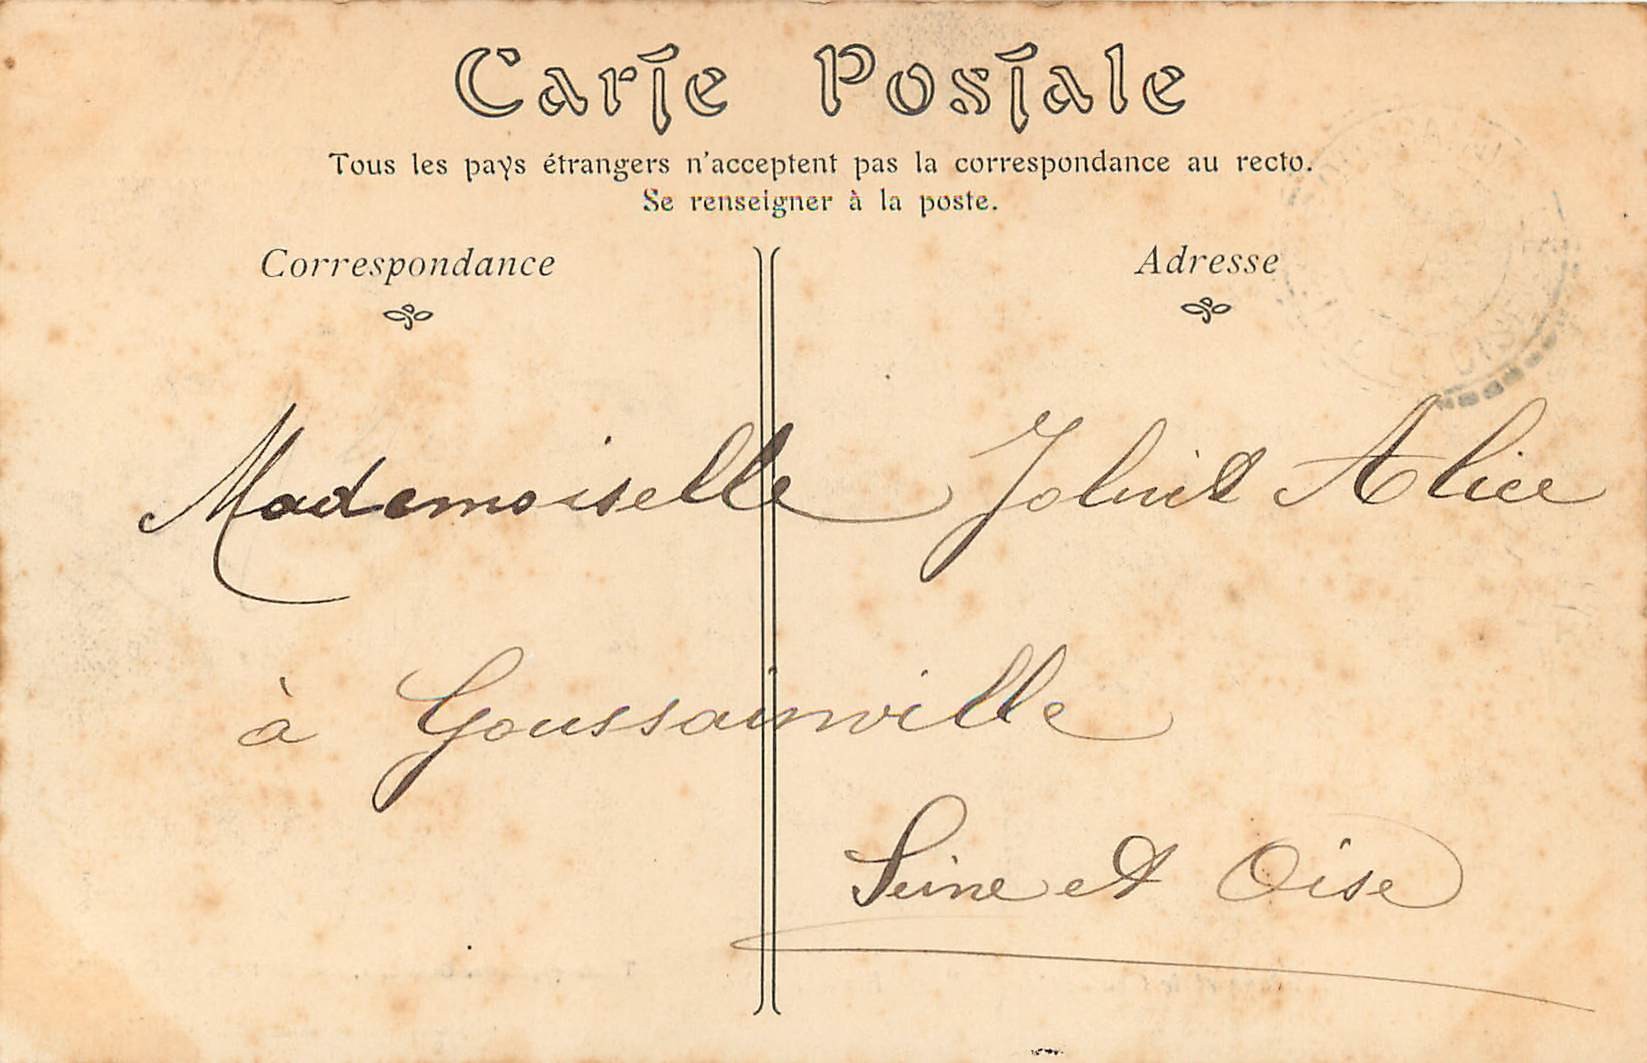 Carte Postale
Tous les pays étrangers n'acceptent pas la correspondance au recto.
Se renseigner à la poste.
Correspondance
Adresse
Mademoiselle Alice
à Goussainville
Seine et Oise